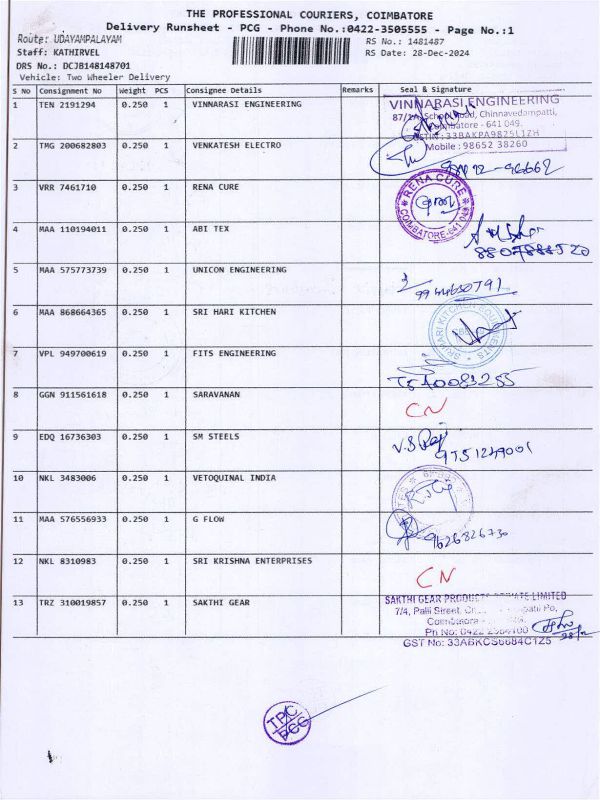 THE PROFESSIONAL COURIERS, COIMBATORE
Delivery Runsheet - PCG - Phone No.:0422-3505555 - Page No.:1
Route: UDAYAMPALAYAM
RS No.: 1481487
Staff: KATHIRVEL
RS Date: 28-Dec-2024
DRS No.: DCJB148148701
Vehicle: Two Wheeler Delivery
S No Consignment No Weight PCS Consignee Details Remarks Seal & Signature
1 TEN 2191294 0.250 1 VINNARASI ENGINEERING
VINNARASI ENGINEERING
87/1A, School Road, Chinnavedampatti,
Coimbatore - 641 049.
GSTIN : 33BAKPA9825L1ZH
Mobile : 98652 38260
2 TMG 200682803 0.250 1 VENKATESH ELECTRO
3 VRR 7461710 0.250 1 RENA CURE
RENA CURE
COIMBATORE-641 049
4 MAA 110194011 0.250 1 ABI TEX
8807888520
5 MAA 575773739 0.250 1 UNICON ENGINEERING
9944650791
6 MAA 868664365 0.250 1 SRI HARI KITCHEN
SRI HARI KITCHEN EQUIPMENTS
7 VPL 949700619 0.250 1 FITS ENGINEERING
8 GGN 911561618 0.250 1 SARAVANAN
CN
9 EDQ 16736303 0.250 1 SM STEELS
V.S Raj
9751249001
10 NKL 3483006 0.250 1 VETOQUINAL INDIA
11 MAA 576556933 0.250 1 G FLOW
9626826730
12 NKL 8310983 0.250 1 SRI KRISHNA ENTERPRISES
CN
13 TRZ 310019857 0.250 1 SAKTHI GEAR
SAKTHI GEAR PRODUCTS PRIVATE LIMITED
7/4, Palli Street,
Coimbatore
Ph No: 0422
GST No: 33ABKCS6684C1Z5
TPC
PCG